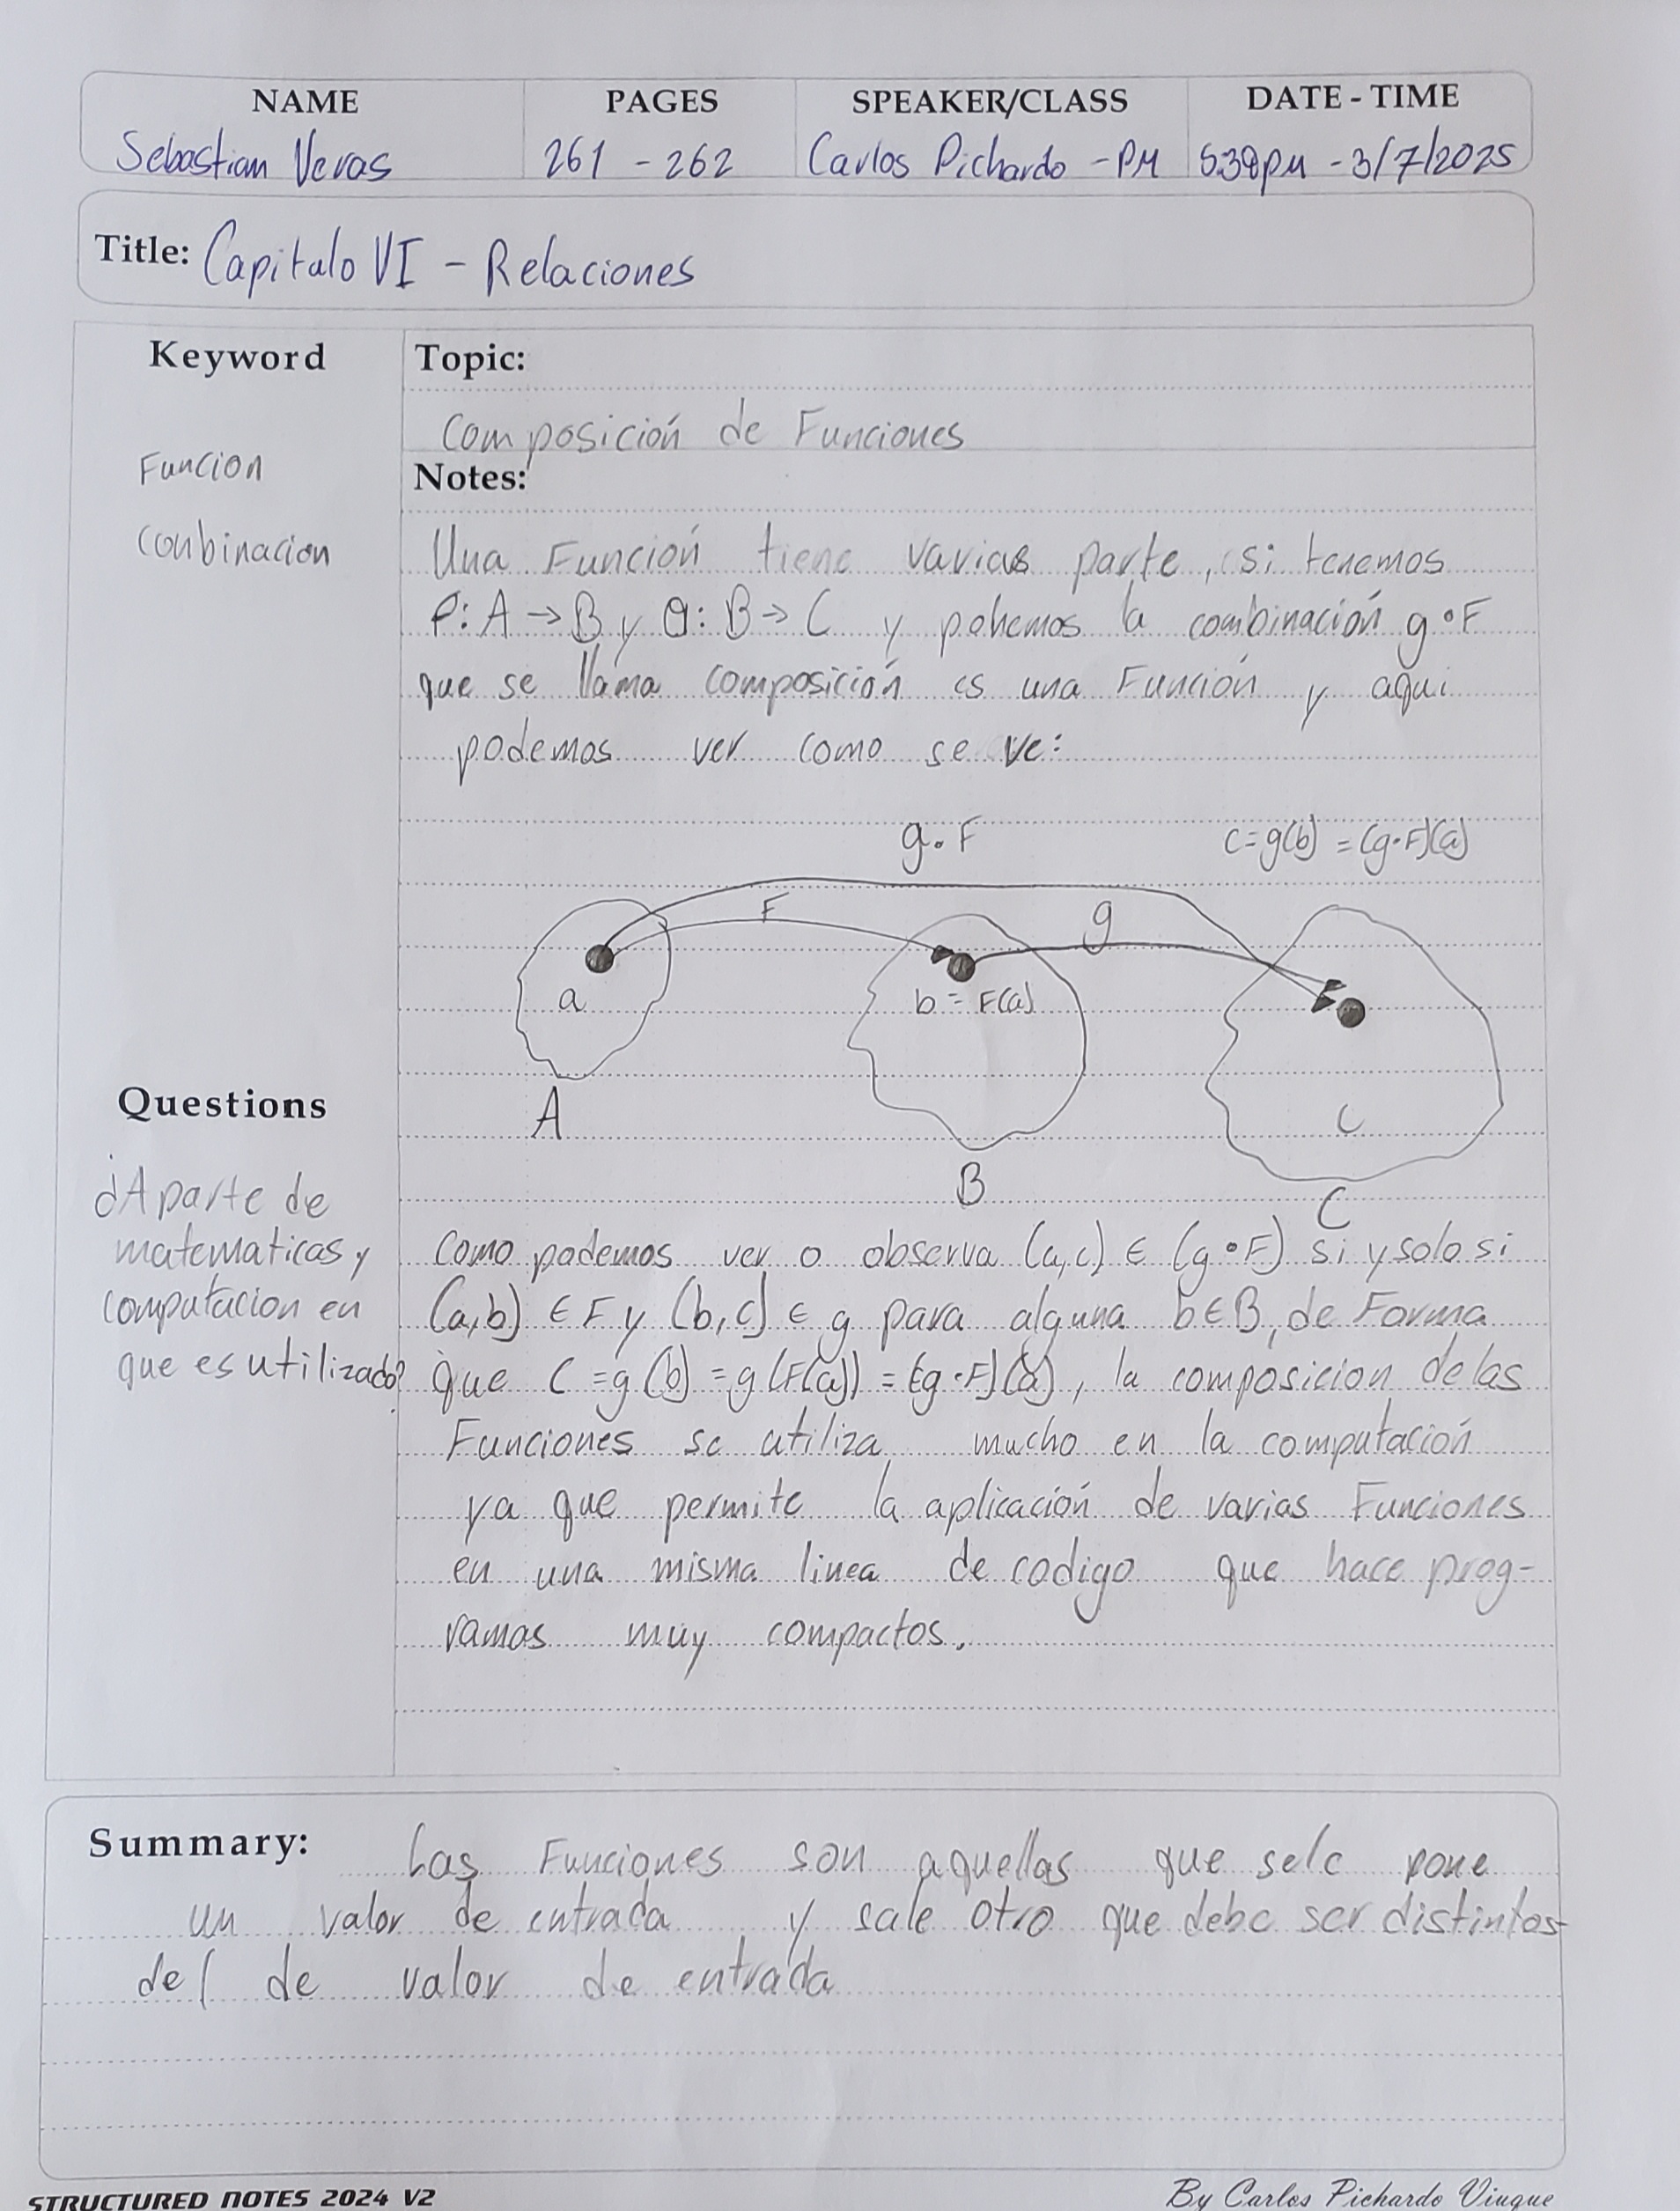 NAME PAGES SPEAKER/CLASS DATE - TIME
Sebastian Veras 261 - 262 Carlos Pichardo - PM 5:38pm - 3/7/2025
Title: Capitulo VI - Relaciones
Keyword
Funcion
Conbinacion
Topic:
Composición de Funciones
Notes:
Una Función tiene varias parte, si tenemos
f: A → B y g: B → C y ponemos la combinación g∘F
que se llama composición es una Función y aqui
podemos ver como se ve:
g∘F c=g(b) = (g∘F)(a)
F g
a b = F(a)
A C
B
C
Questions
¿Aparte de
matematicas y
computacion en
que es utilizado?
como podemos ver o observa (a,c) ∈ (g∘F) si y solo si
(a,b) ∈ F y (b,c) ∈ g para alguna b∈B, de Forma
que C = g(b) = g(F(a)) = (g∘F)(a), la composicion de las
Funciones se utiliza mucho en la computación
ya que permite la aplicación de varias Funciones
en una misma linea de codigo que hace prog-
ramas muy compactos.
Summary: Las Funciones son aquellas que sele pone
un valor de entrada y sale otro que debe ser distintos
del de valor de entrada
STRUCTURED NOTES 2024 V2 By Carlos Pichardo Viuque